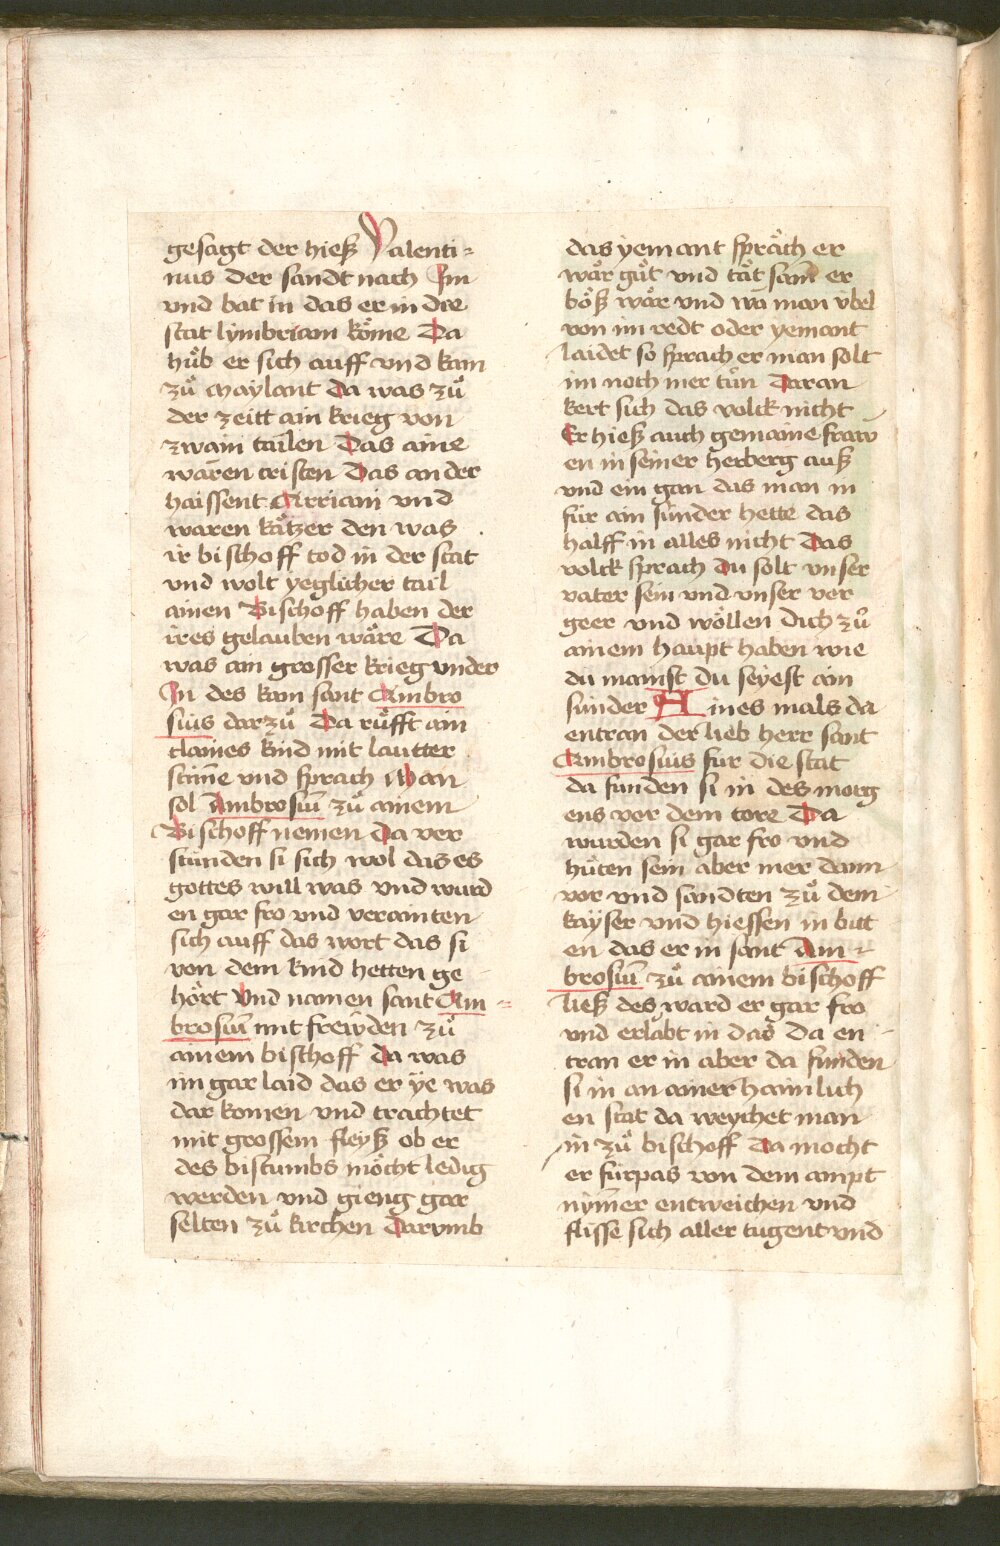 gesagt der hieß Valenti⸗
nus der sandt nach Im
vnd bat in das er in die
stat lymbriam kͦme Da
hůb er sich auff vnd kam
zů maylant da was zů
der zeitt ain krieg von
zwain tailen Das aine
waren cristen Das ander
haissent Arriani vnd
waren kätzer den was
ir bischoff tod in der stat
vnd wolt yeglicher tail
ainen Bischoff haben der
ires gelauben wäre Da
was ain grosser krieg vnder
In des kam sant Ambro
sius darzů Da růfft ain
claines kind mit lautter
stim̄e vnd sprach Man
sol Ambrosiū zů ainem
Bischoff nemen da ver
stůnden si sich wol das es
gottes will was vnd wurd
en gar fro vnd verainten
sich auff das wort das si
von dem kind hetten ge
hört Vnd namen sant Am⸗
brosiū mit frewden zů
ainem bischoff da was
im gar laid das er ye was
dar komen vnd trachtet
mit grossem fleyß ob er
des bistumbs möcht ledig
werden vnd gieng gar
selten zů kirchen Darvmb
das yemant spräch er
wär gůt vnd tät sam er
böß wär vnd wa man vbel
von im redt oder yemant
laidet so sprach er man solt
im noch mer tůn Daran
kert sich das volck nicht
Er hieß auch gemaine fraw
en in seiner herberg auß
vnd ein gan das man in
für ain sünder hette das
halff in alles nicht Das
volck sprach du solt vnser
vater sein vnd vnser ver
geer vnd wöllen dich zů
ainem haupt haben wie
du mainst du seyest ain
sünder Aines mals da
entran der lieb herr sant
Ambrosius für die stat
da funden si in des morg
ens vor dem tore Da
wurden si gar fro vnd
hůten sein aber mer dann
vor vnd sandten zů dem
kayser vnd hiessen in bitt
en das er in sant Am⸗
brosiū zů ainem bischoff
ließ des ward er gar fro
vnd erlabt in das Da en
tran er in aber da funden
si in an ainer haimlich
en stat da weychet man
in zů bischoff Da mocht
er fürpas von dem ampt
nym̄er entweichen vnd
flisse sich aller tugent vnd